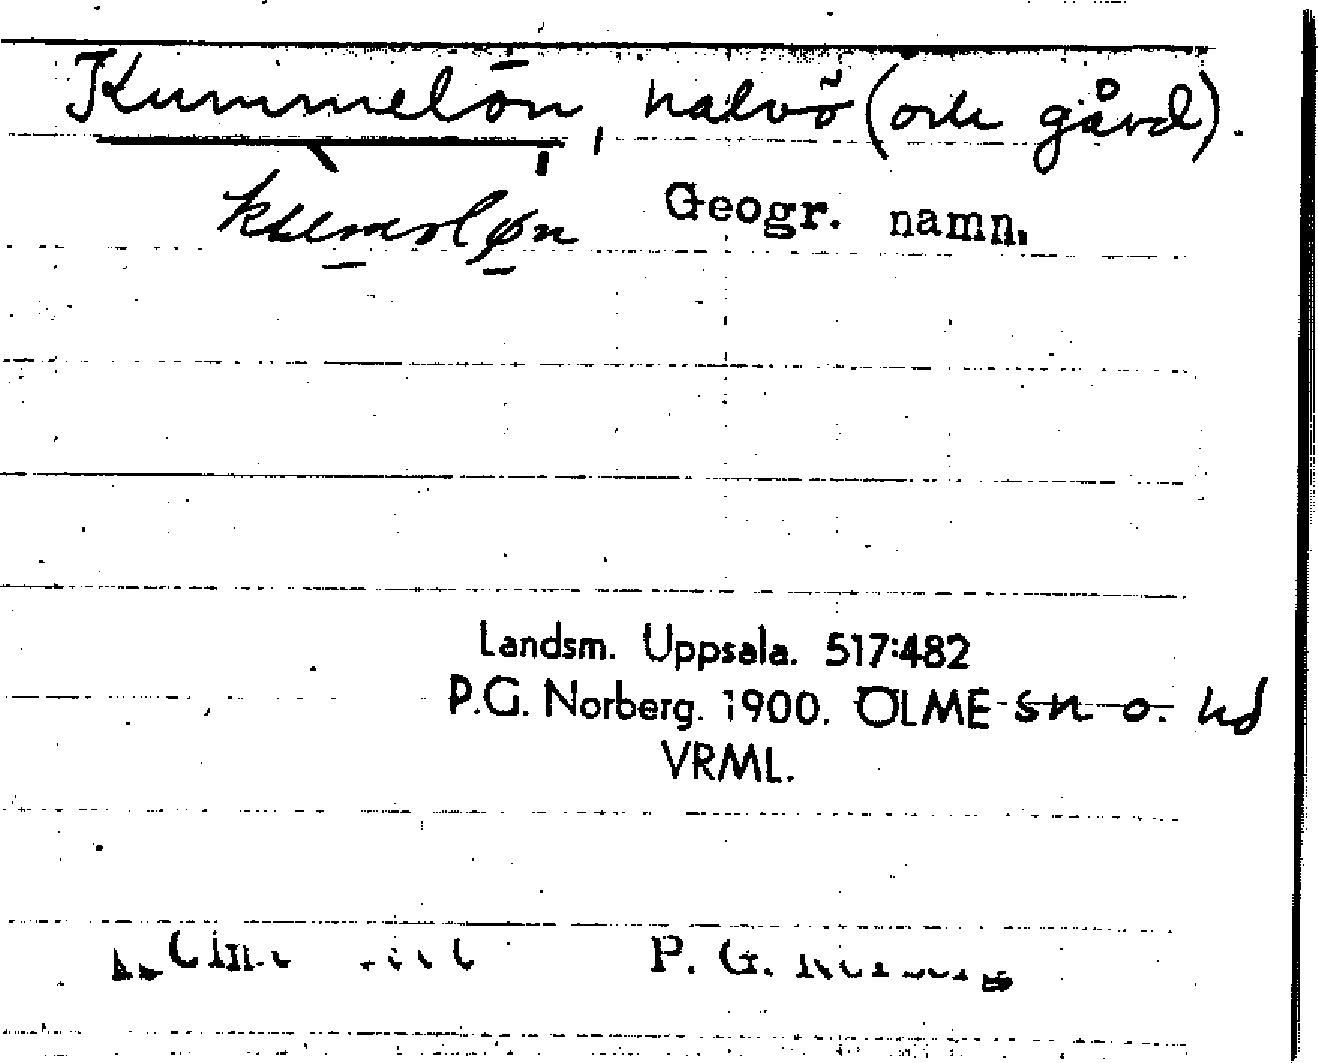 Kummelön, halvö (och gård).
Geogr. namn.
Landsm. Uppsala. 517:482
P.G. Norberg. 1900. ÖLME sn o. hd
VRML.
P. G.